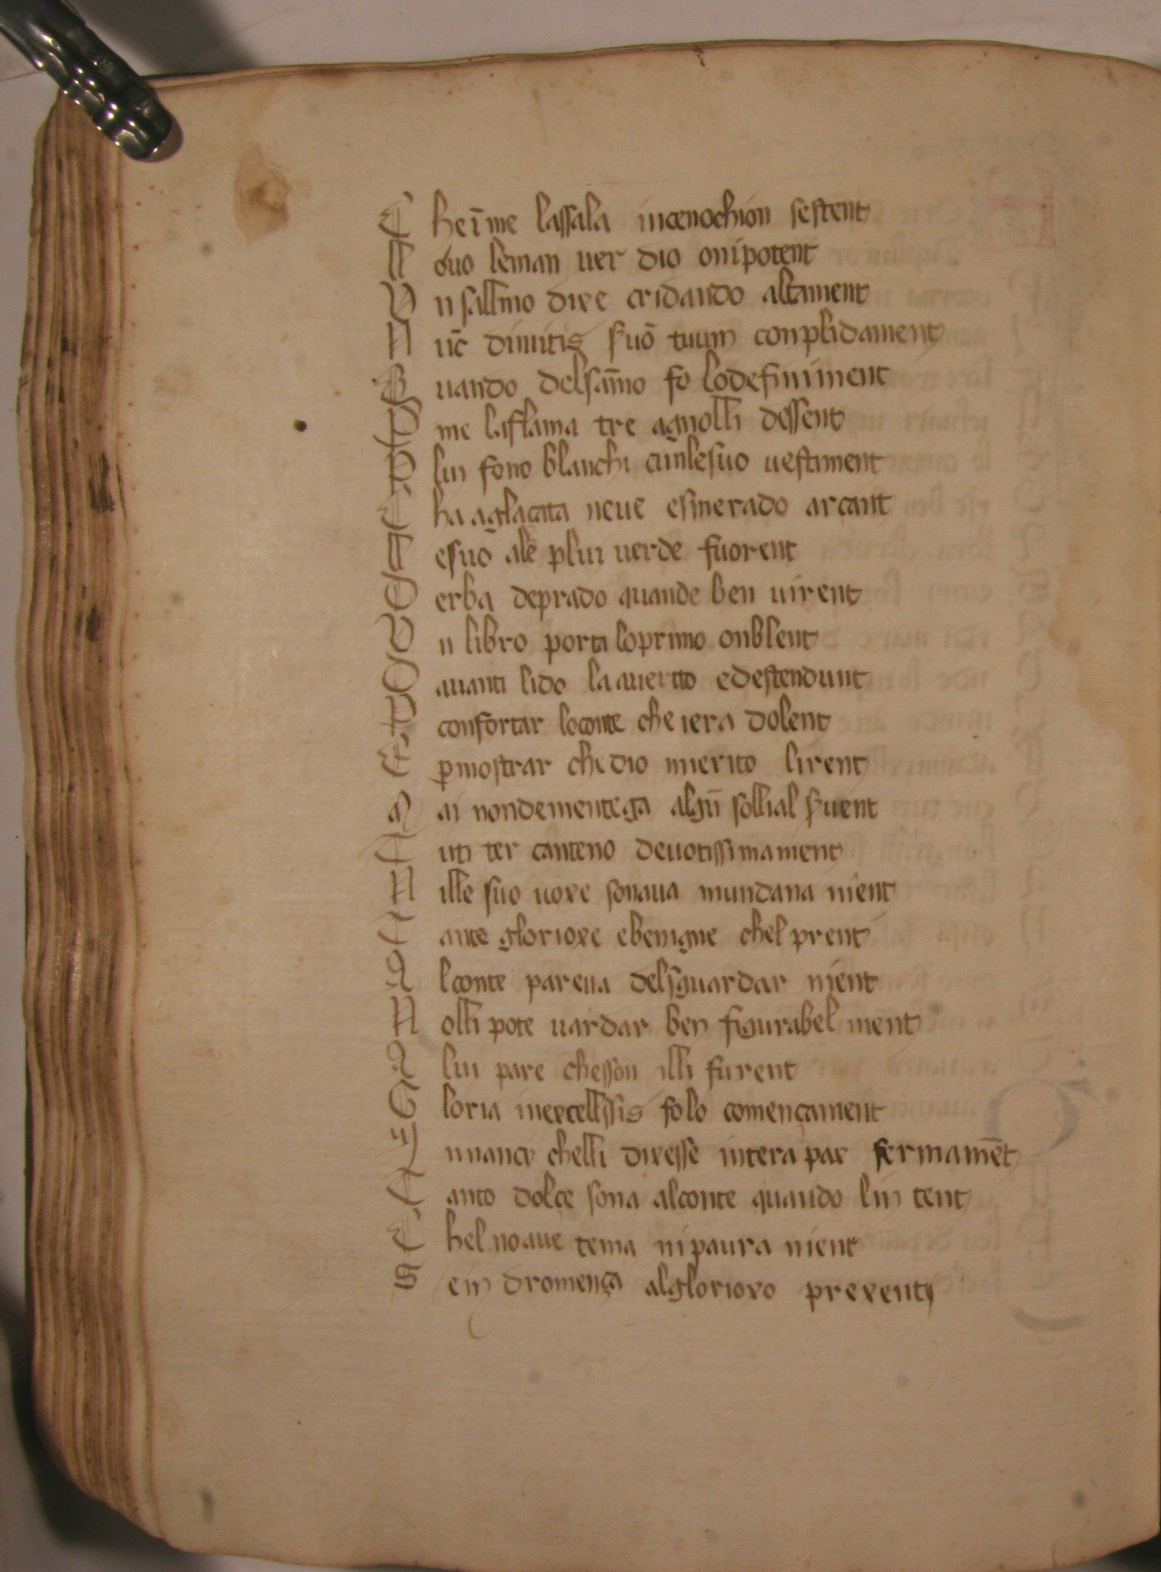 C he īme lassala incenochion sestent
L ouo leman uer dio onipotent
V n sallmo dixe cridando altament
N ūc dimitis suō tuum conplidament
Q uando delsāmo fo lodefiniment
P me laflama tre agnolli dessent
P lui fono blanchi cunlesuo uestiment
C ha aglaçata neue esmerado arcant
L esuo ale plui uerde fuorent
D erba deprado quande ben uirent
V n libro porta loprimo onblent
D auanti lido la auerto edestendunt
P confortar loconte che iera dolent
E pmostrar chedio merito lirent
M ai nondementega algū sollial suent
C uti ter canteno deuotissimament
N ille suo uoxe sonaua mundana nient
C ante glorioxe ebenigne chel prent
A lconte pareua delsguardar nient
N olli pote uardar ben figurabel ment
A lui pare chesson illi furent
G loria inexcellssis folo començament
I nnançe chelli dixesse intera pax fermamēt
C anto dolçe sona alconte quando lin tent
C hel noaue tema ni paura nient
S ein dromença alglorioxo prexent